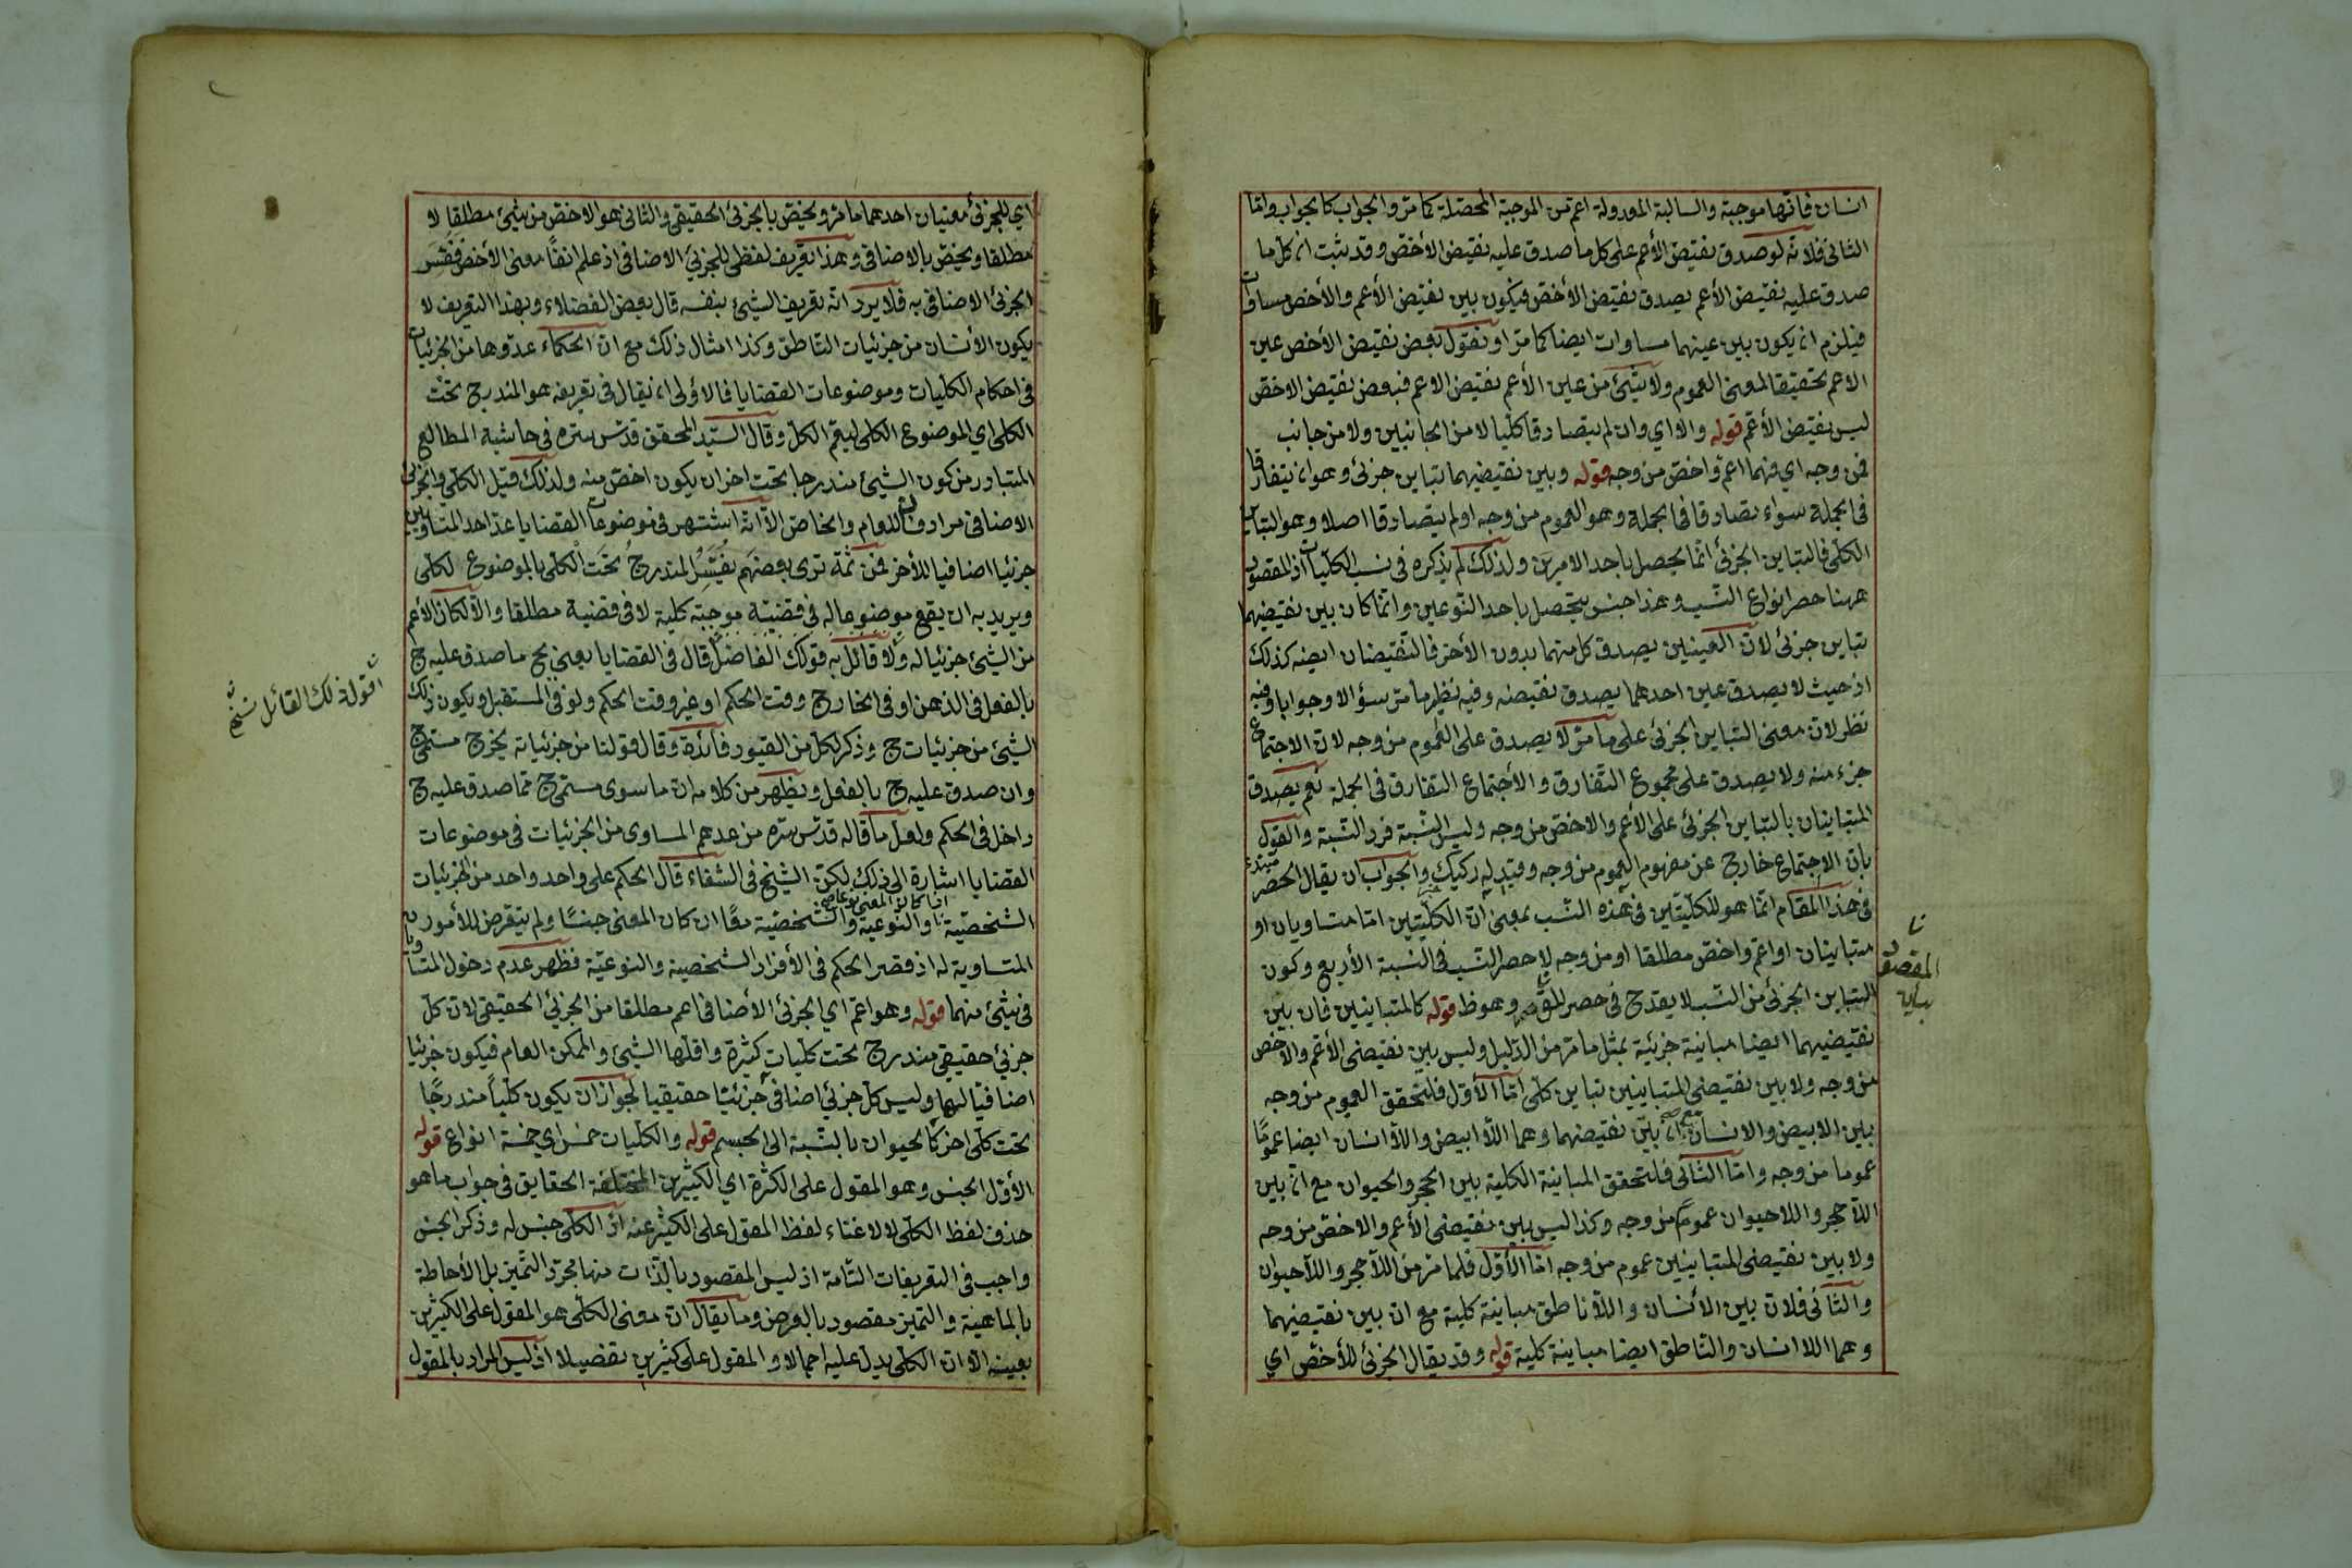 انسان فانها موجبة والسالبة المعدولة اعم من الموجبة المحصلة كما مر والجواب كالجواب واما
الثانى فلانه لو صدق نقيض الأعم على كل ما صدق عليه نقيض الأخص وقد ثبت ان كل ما
صدق عليه نقيض الأعم يصدق نقيض الأخص فيكون بين نقيض الأعم والأخص مساوات
فيلزم ان يكون بين عينهما مساوات ايضا كما مر او نقول بعض نقيض الأخص عين
الاعم تحقيقا لمعنى العموم ولا شيئ من عين الأعم نقيض الاعم فبعض نقيض الاخص
ليس نقيض الأعم قوله والا اى وان لم يتصادقا كليا لا من الجانبين ولا من جانب
فمن وجه اى فهما اعم واخص من وجه قوله وبين نقيضيهما تباين جزئى وهو ان يتفارقا
فى الجملة سواء تصادقا فى الجملة وهو العموم من وجه او لم يتصادقا اصلا وهو التباين
الكلى فالتباين الجزئى انما يحصل باحد الامرين ولذلك لم يذكره فى نسب الكليات اذ المقصود
ههنا حصر انواع النسب وهذا جنس يتحصل باحد النوعين وانما كان بين نقيضيهما
تباين جزئى لان العينين يصدق كل منهما بدون الأخر فالنقيضان ايضا كذلك
اذ حيث لا يصدق عين احدهما يصدق نقيضه وفيه نظير ما مر سؤالا وجوابا وفيه
نظر لان معنى التباين الجزئى على ما مر لا يصدق على العموم من وجه لان الاجتماع
جزء منه ولا يصدق على مجموع التفارق والأجتماع التفارق فى الجملة نعم يصدق
المتباينان بالتباين الجزئى على الأعم والاخص من وجه وليس النسبة فرد النسبة والقول
بان الاجتماع خارج عن مفهوم العموم من وجه وقيد له ركيك والجواب ان يقال الحصر
مبتدء
فى هذا المقام انما هو للكليتين فى هذه النسب بمعنى ان الكليتين اما متساويان او
متباينان او اعم واخص مطلقا او من وجه لا حصر النسب فى النسبة الأربع وكون
التباين الجزئى من النسب لا يقدح فى حصر المق وهو ظ قوله كالمتباينين فان بين
المقصود
نقيضيهما ايضا مباينة جزئية بمثل ما مر من الدليل وليس بين نقيضى الأعم والأخص
من وجه ولا بين نقيضى المتباينين تباين كلى اما الأول فلتحقق العموم من وجه
بين الابيض والانسان مع ان بين نقيضهما وهما اللا ابيض واللا انسان ايضا عموما
عموما من وجه واما الثانى فلتحقق المباينة الكلية بين الحجر والحيوان مع ان بين
اللا حجر واللا حيوان عموم من وجه وكذا ليس بين نقيضى الأعم والاخص من وجه
ولا بين نقيضى المتباينين عموم من وجه اما الأول فلما مر من اللا حجر واللا حيوان
والثانى فلان بين الأنسان واللا ناطق مباينة كلية مع ان بين نقيضيهما
وهما اللا انسان والناطق ايضا مباينة كلية قوله وقد يقال الجزئى للأخص اى
اى للجزئى معنيان احدهما ما مر ويختص بالجزئى الحقيقى والثانى هو الاخص من شيئ مطلقا لا
مطلقا ويختص بالاضافى وهذا تعريف لفظى للجزئى الاضافى اذ علم انفا معنى الأخص ففسر
الجزئى الاضافى به فلا يرد انه تعريف الشيئ بنفسه قال بعض الفضلاء وبهذا التعريف لا
يكون الأنسان من جزئيات الناطق وكذا امثال ذلك مع ان الحكماء عدوها من الجزئيات
فى احكام الكليات وموضوعات القضايا فالاولى ان يقال فى تعريفه هو المندرج تحت
الكلى اى الموضوع الكلى ليعم الكل وقال السيد المحقق قدس سره فى حاشية المطالع
المتبادر من كون الشيئ مندرجا تحت اخر ان يكون اخص منه ولذلك قيل الكلى والجزئى
الاضافى مرادفان للعام والخاص الا انه اشتهر فى موضوعات القضايا عد احد المتساويين
جزئيا اضافيا للأخر فمن ثمة ترى بعضهم يفسر المندرج تحت الكلى بالموضوع لكلى
ويريد به ان يقع موضوعا له فى قضية موجبة كلية لا فى قضية مطلقا والا لكان الأعم
من الشيئ جزئيا له ولا قائل به قولك الفاضل قال فى القضايا يعنى بج ما صدق عليه ج
اقول ذلك القائل نسخ
بالفعل فى الذهن او فى الخارج وقت الحكم او غير وقت الحكم ولو فى المستقبل ويكون ذلك
الشيئ من جزئيات ج وذكر لكل من القيود فائدة وقال قولنا من جزئياته يخرج مسمى ج
وان صدق عليه ج بالفعل ويظهر من كلامه ان ما سوى مسمى ج مما صدق عليه ج
داخل فى الحكم ولعل ما قاله قدس سره من عدهم المساوى من الجزئيات فى موضوعات
القضايا اشارة الى ذلك لكن الشيخ فى الشفاء قال الحكم على واحد واحد من الجزئيات
الشخصية والنوعية والشخصية معا ان كان المعنى جنسا ولم يتعرض للأمور
المتساوية له اذ قصر الحكم فى الأفراد الشخصية والنوعية فظهر عدم دخول المتساويين
فى شيئ منهما قوله وهو اعم اى الجزئى الأضافى اعم مطلقا من الجزئى الحقيقى لان كل
جزئى حقيقى مندرج تحت كليات كثيرة واقلها الشيئ والممكن العام فيكون جزئيا
اضافيا لهما وليس كل جزئى اضافى جزئيا حقيقيا لجواز ان يكون كليا مندرجا
تحت كلى اخر كالحيوان بالنسبة الى الجسم قوله والكليات خمس اى خمسة انواع قوله
الأول الجنس وهو المقول على الكثرة اى الكثيرين المختلفة الحقايق فى جواب ما هو
حذف لفظ الكلى لاغناء لفظ المقول على الكثير عنه اذ الكلى جنس له وذكر الجنس
واجب فى التعريفات التامة اذ ليس المقصود بالذات منها مجرد التميز بل الأحاطة
بالماهية والتميز مقصود بالعرض وما يقال ان معنى الكلى هو المقول على الكثيرين
بعينه الا ان الكلى يدل عليه اجمالا والمقول على كثيرين تفصيلا اذ ليس المراد بالمقول